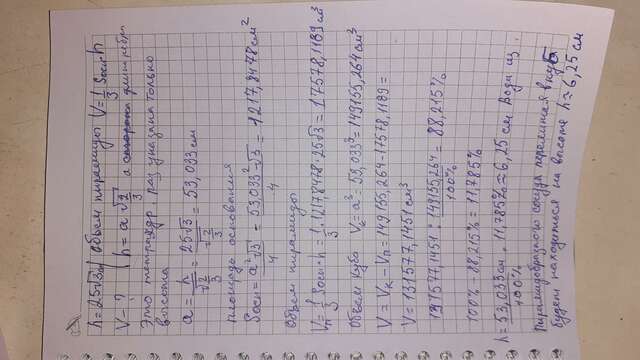 h=25√3см | Объем пирамиды V=1/3 Sосн·h
V-? | h=a√2/3 a длина ребра
Это тетраэдр, раз указана только
высота
a=h/√2/3=25√3/√2/3=53,033 см
площадь основания
Sосн=a²√3/4=53,033²·√3/4=1217,8478 см²
Объем пирамиды
Vп=1/3 Sосн·h=1/3·1217,8478·25√3=17578,1189 см³
Объем куба Vк=a³=53,033³=149155,264 см³
V=Vк-Vп=149155,264-17578,1189=
V=131577,1451 см³
131577,1451:149155,264/100%=88,215%
100%-88,215%=11,785%
h=53,033см/100%·11,785%≈6,25 см Вода из
пирамидообразного сосуда перелитая в куб
будет находиться на высоте h≈6,25 см